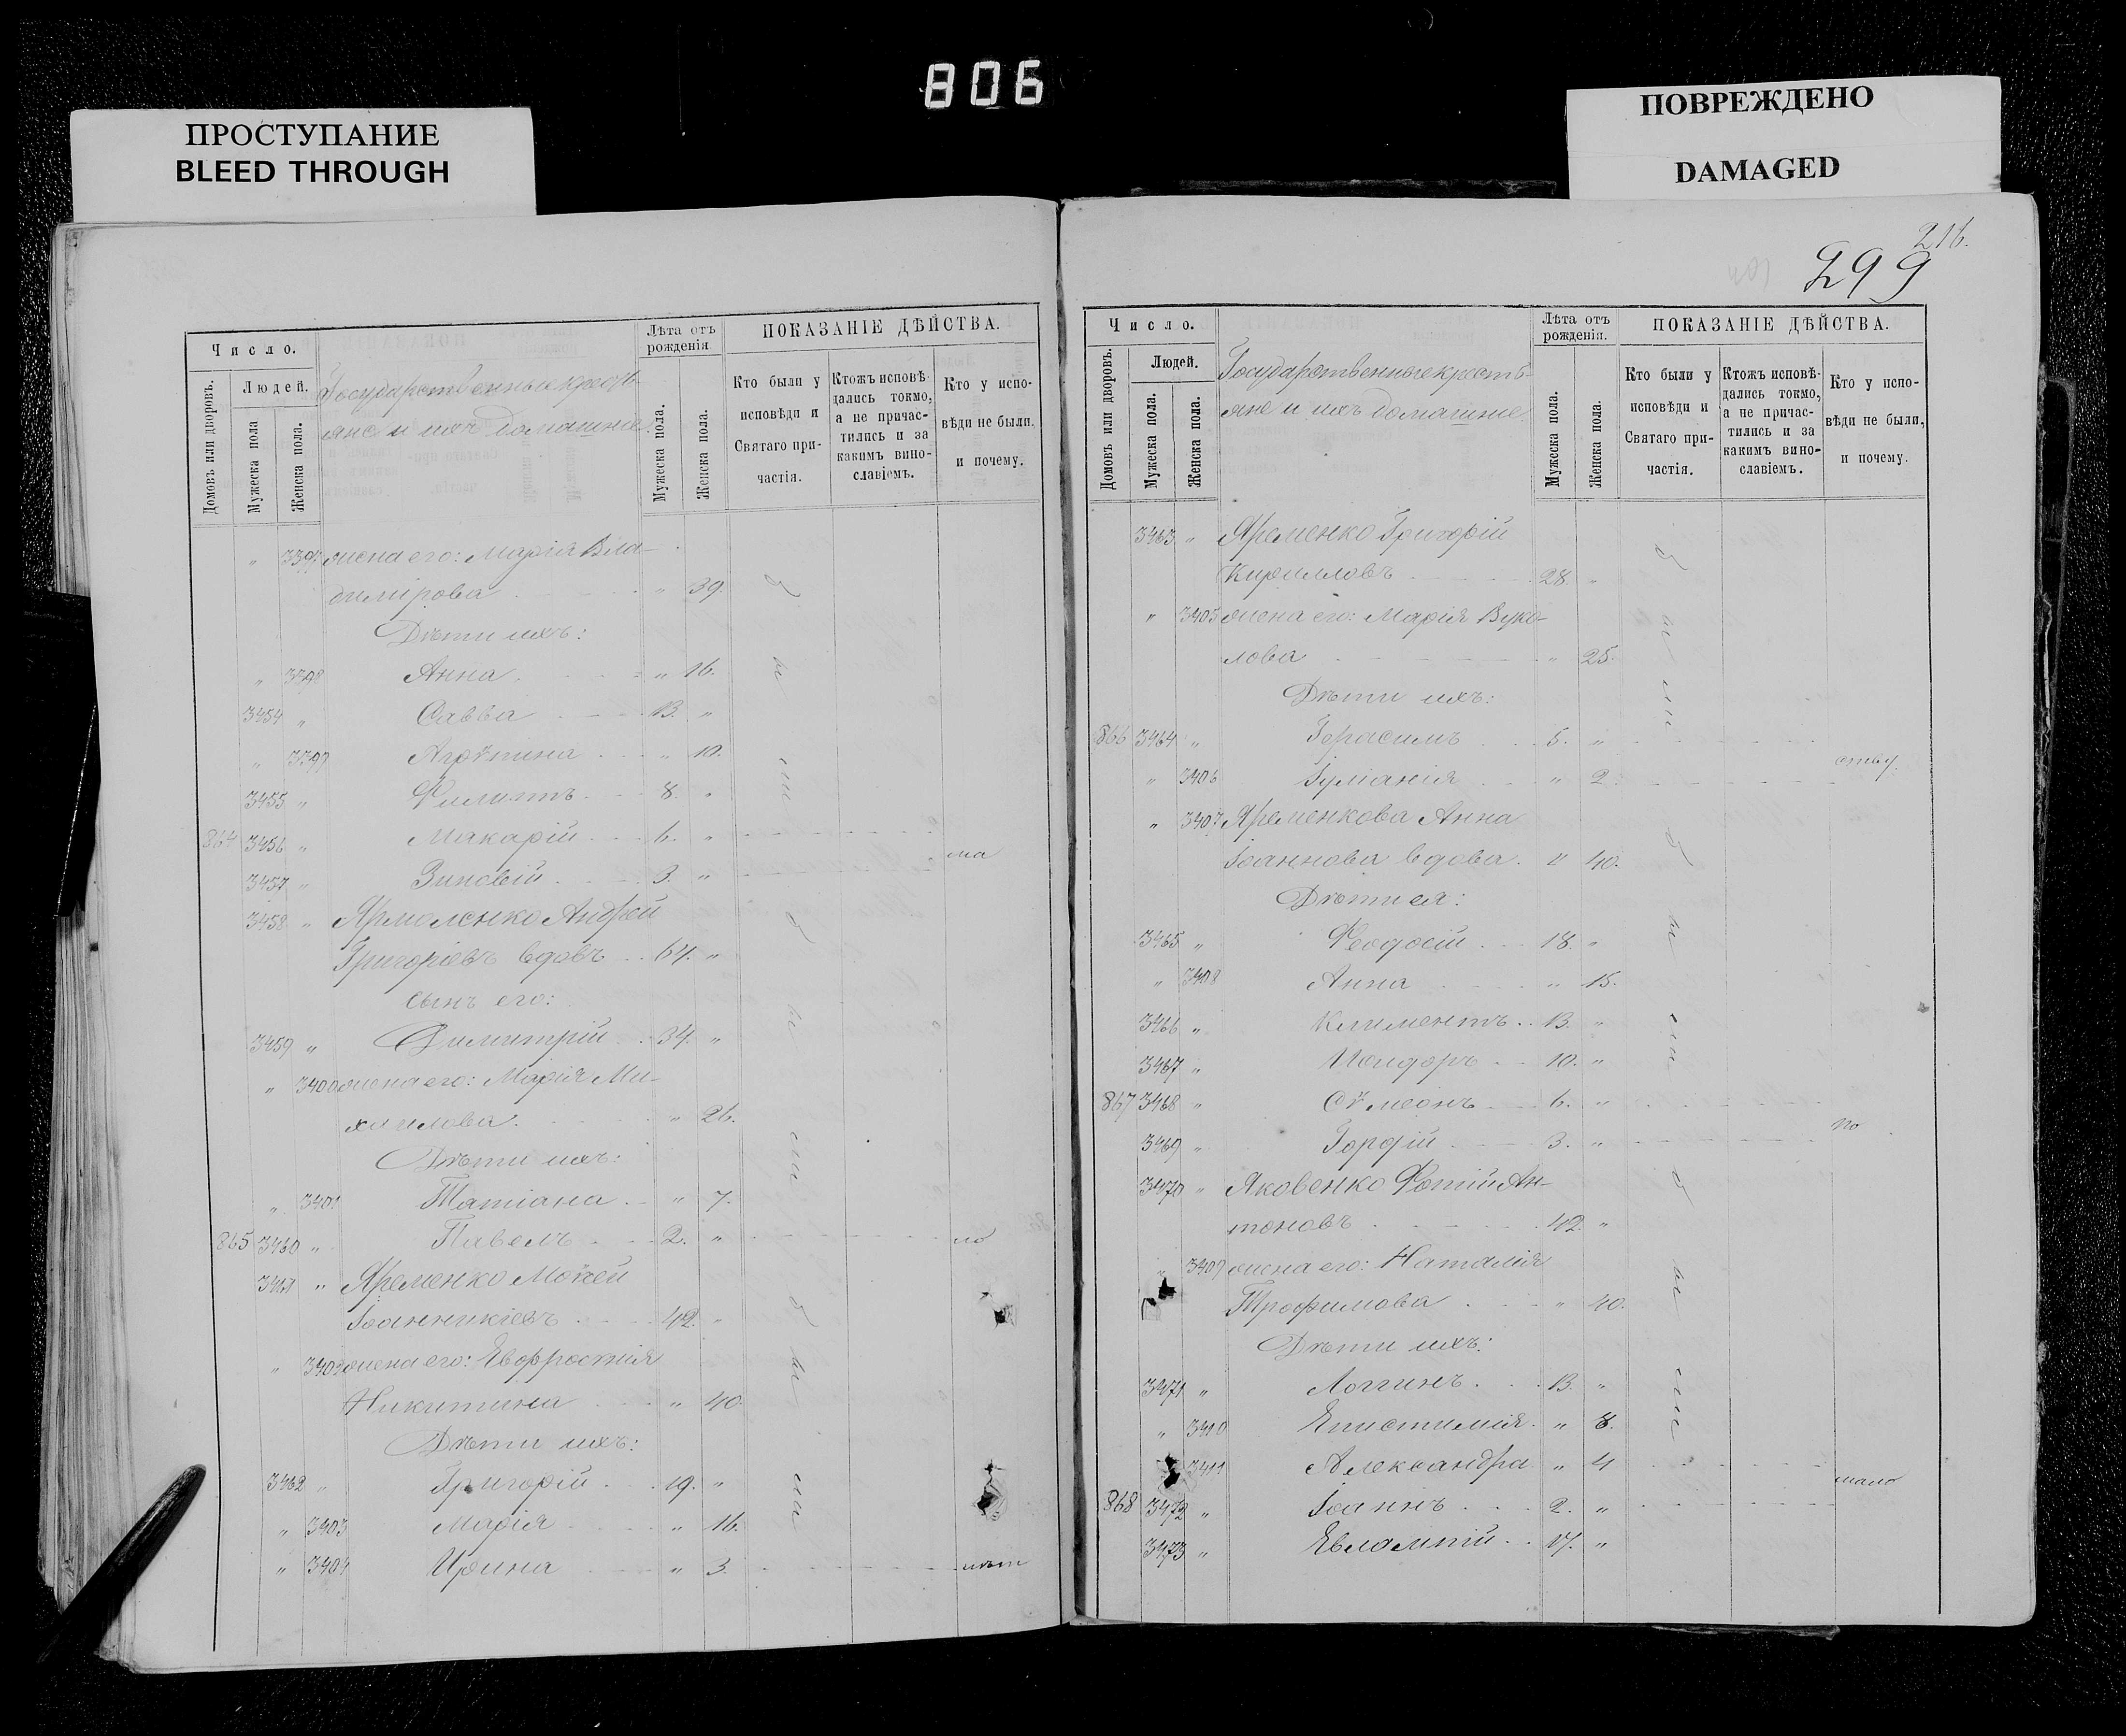 806
ПРОСТУПАНИЕ
BLEED THROUGH
ПОВРЕЖДЕНО
DAMAGED
Число.
Домовъ или дворовъ.
Людей.
Мужеска пола
Женска пола.
Государственные кресть-
яне и ихъ домашніе
Лѣта отъ рожденія.
Мужеска пола.
Женска пола.
ПОКАЗАНІЕ ДѢЙСТВА.
Кто были у исповѣди и Святаго при-частія.
Ктожъ исповѣ-дались токмо, а не причас-тились и за какимъ вино-славіемъ.
Кто у испо-вѣди не были. и почему.
" жена его: Марія Вла-
димірова " 39.
Дѣти ихъ:
" 3398 Анна " 16.
3454 " Савва 13. "
" 3399 Агрѣпина " 10.
3455 " Филиппъ 8. "
864 3456 " Макарій 6. "
3457 " Зиновій 3. " ма
3458 " Ярмоленко Андрей
Григоріевъ вдовъ 64. "
сынъ его:
3459 " Димитрій 34. "
" 3400 жена его: Марія Ми-
хаилова " 26.
Дѣти ихъ:
" 3401 Татіана " 7.
865 3460 " Павелъ 2. " ло
3461 " Яременко Моѵсей
Іоанникіевъ 42. "
" 3402 жена его: Евфросинія
Никитина " 40.
Дѣти ихъ:
3462 " Григорій 19. "
" 3403 Марія " 16.
" 3404 Ирина " 3. лѣт
были
были
были
216.
299
Число.
Домовъ или дворовъ.
Людей.
Мужеска пола.
Женска пола.
Государственные кресть-
яне и ихъ домашніе
Лѣта отъ рожденія.
Мужеска пола.
Женска пола.
ПОКАЗАНІЕ ДѢЙСТВА.
Кто были у исповѣди и Святаго при-частія.
Ктожъ исповѣ-дались токмо, а не причас-тились и за какимъ вино-славіемъ.
Кто у испо-вѣди не были, и почему.
3463 " Яременко Григорій
Кирилловъ 28. "
" 3405 жена его: Марія Вуко-
лова " 25.
Дѣти ихъ:
866 3464 " Герасимъ 5. "
" 3406 Іуліанія " 2. ству.
" 3407 Яременкова Анна
Іоаннова вдова " 40.
Дѣти ея:
3465 " Ѳеодосій 18. "
" 3408 Анна " 15.
3466 " Климентъ 13. "
3467 " Исидоръ 10. "
867 3468 " Сѵмеонъ 6. "
3469 " Гордій 3. " по
3470 " Яковенко Фотій Ан-
тоновъ 42. "
" 3409 жена его: Наталія
Трофимова " 40.
Дѣти ихъ:
3471 " Логгинъ 13. "
" 3410 Епистимія " 8.
3411 Александра " 4
868 3472 " Іоаннъ 2. " мало
3473 " Евлампій 17. "
были
были
были